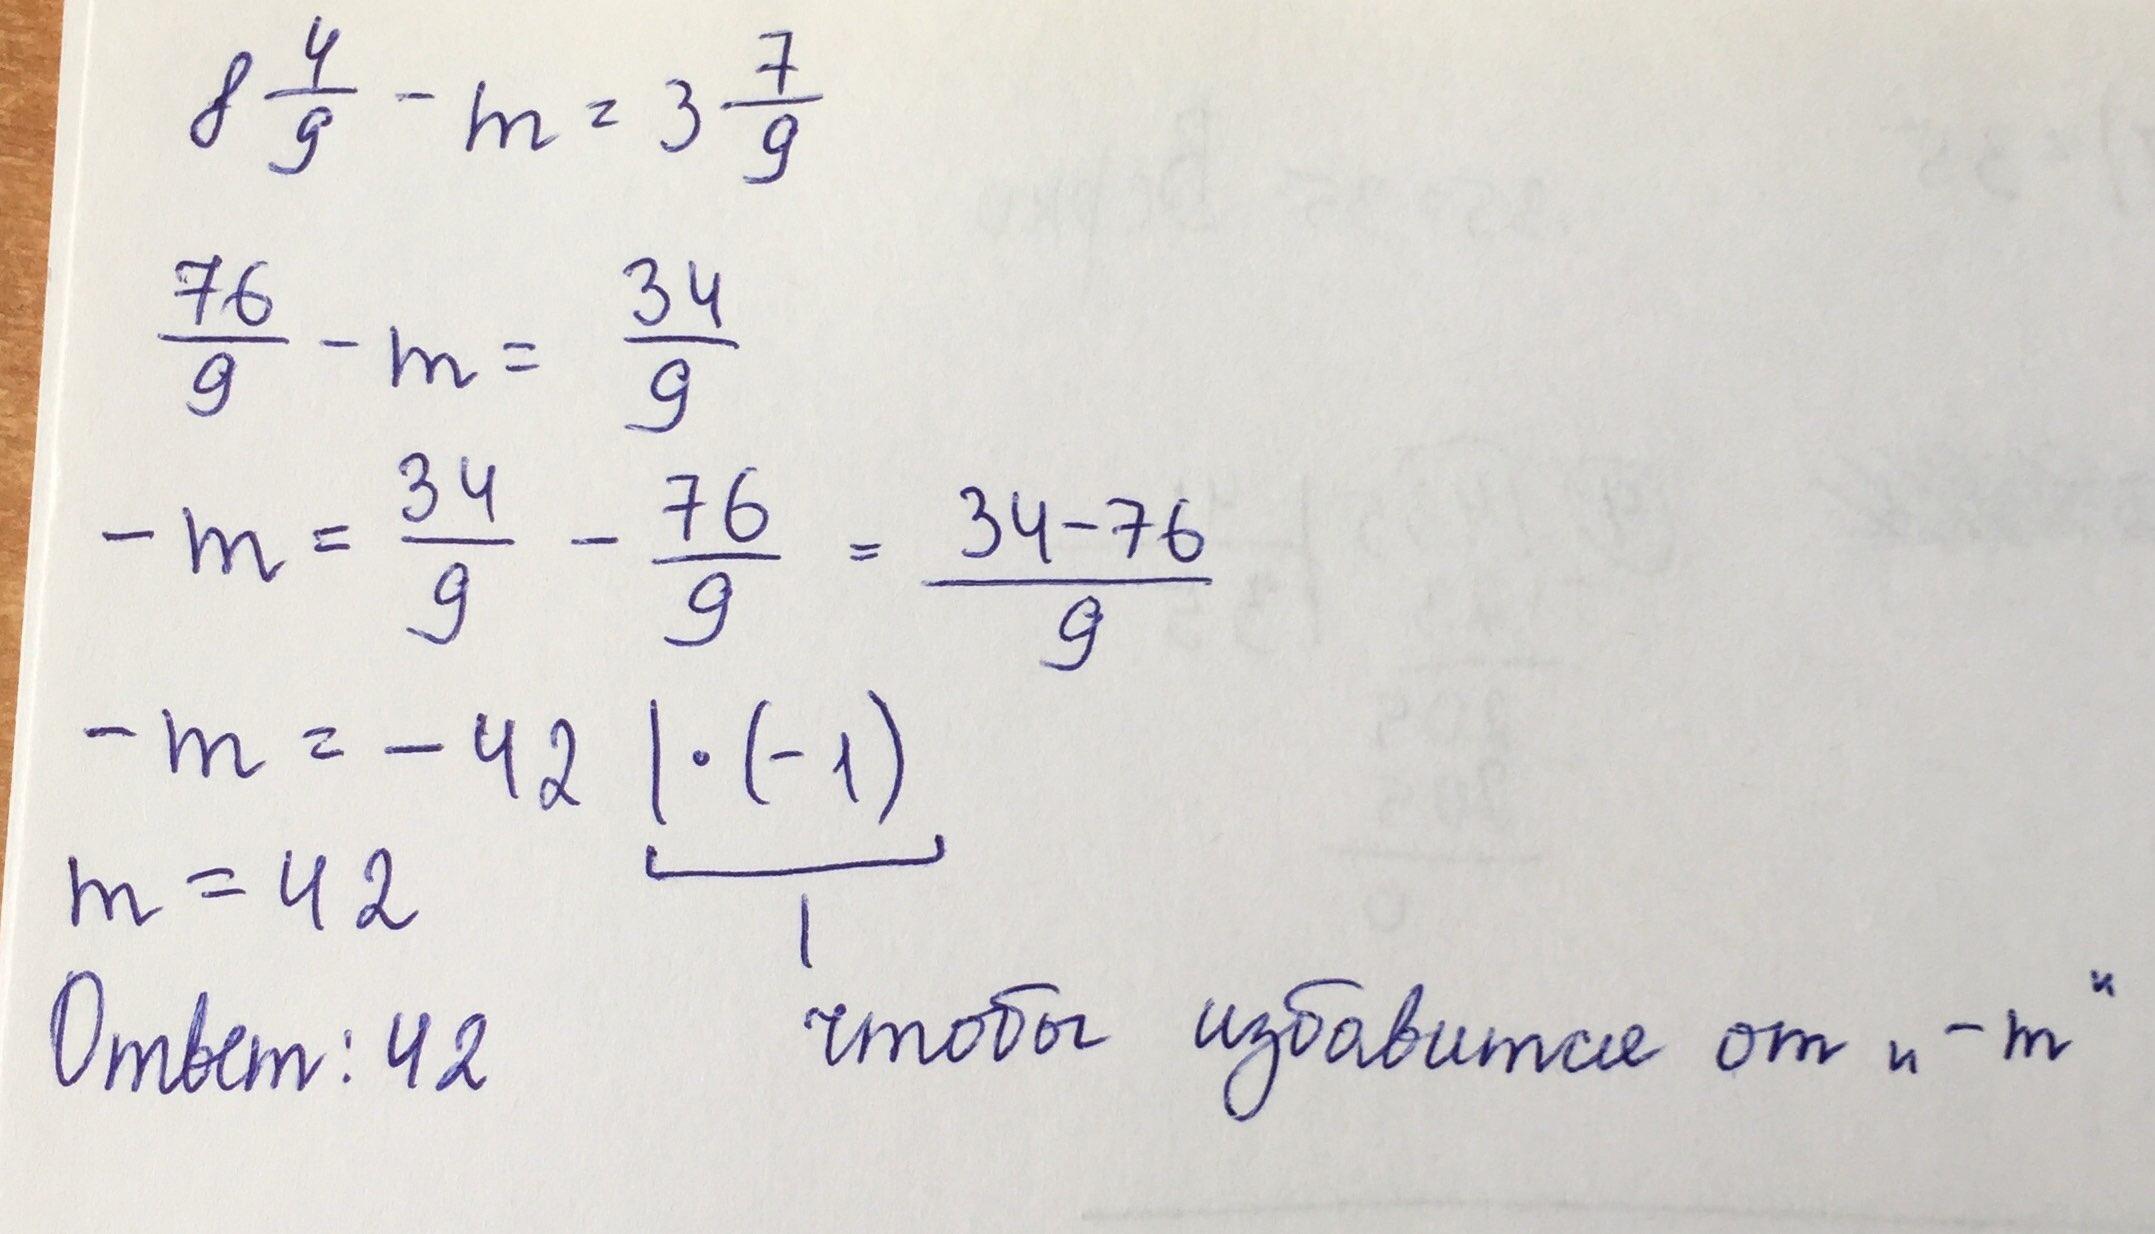 8 4/9 - m = 3 7/9
76/9 - m = 34/9
- m = 34/9 - 76/9 = 34-76/9
- m = - 42 | · (-1)
m = 42
Ответ: 42
чтобы избавится от „ -m “